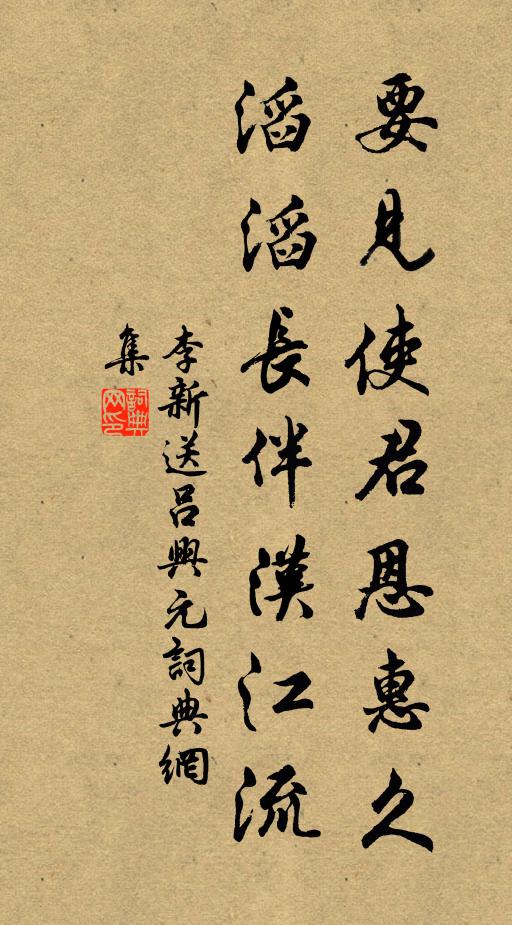 要見使君恩惠久
滔滔長伴漢江流
李新送呂興元詞典網
集
詞典
网印